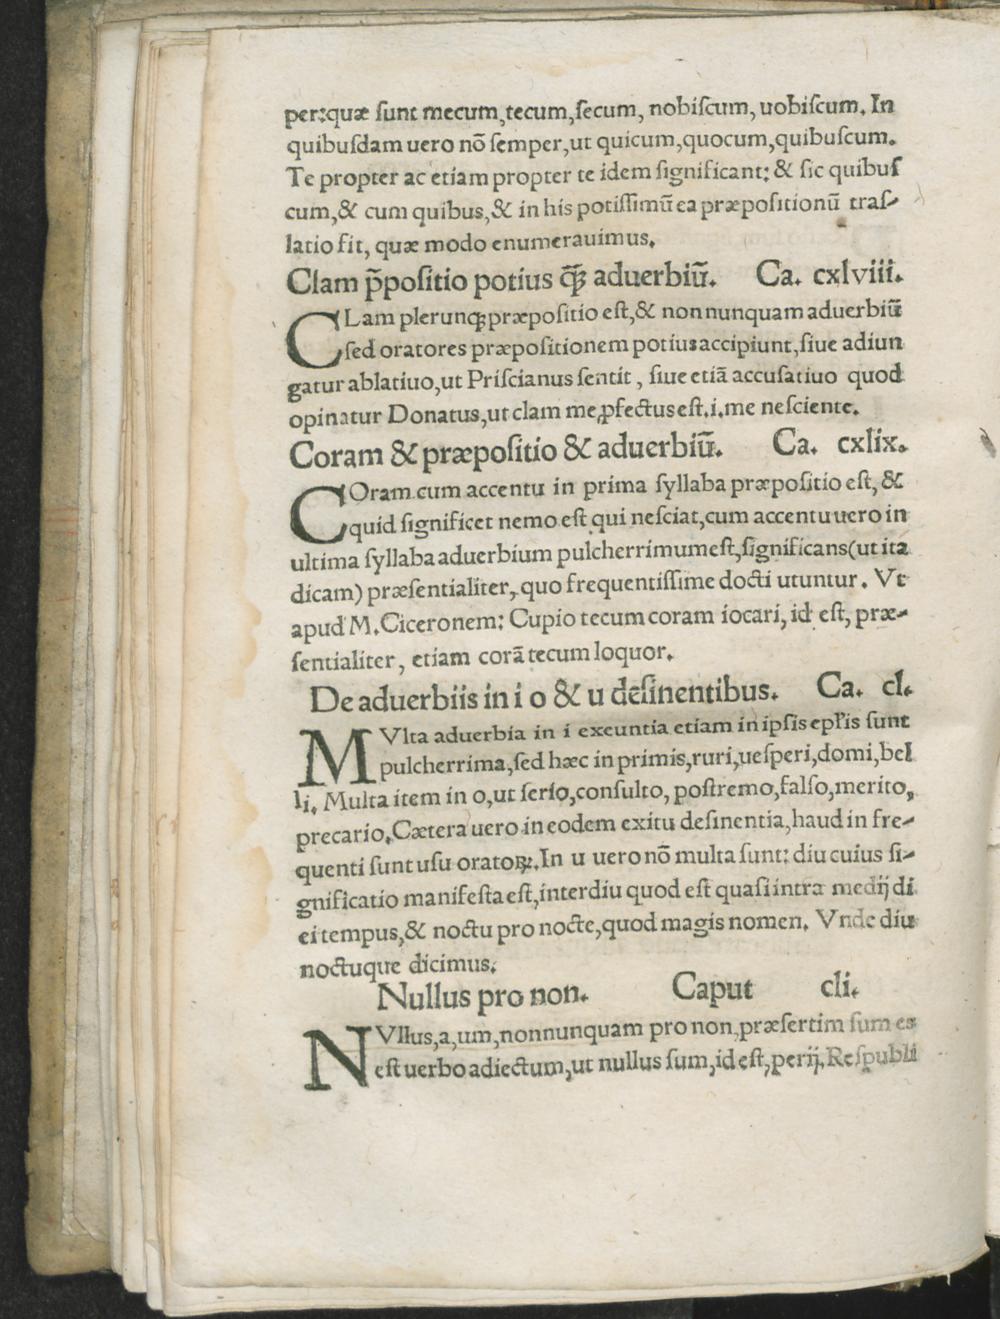 per:quæ ſunt mecum,tecum,ſecum, nobiſcum, uobiſcum. In
quibuſdam uero nõ ſemper,ut quicum,quocum,quibuſcum.
Te propter ac etiam propter te idem ſignificant: & ſic quibuſ
cum,& cum quibus,& in his potiſſimũ ea præpoſitionũ traſ-
latio fit, quæ modo enumerauimus.
Clam p̄poſitio potius q̃ꝫ aduerbiũ. Ca. cxlviii.
CLam plerunqꝫ præpoſitio eſt,& nonnunquam aduerbiũ
ſed oratores præpoſitionem potius accipiunt,ſiue adiun
gatur ablatiuo,ut Priſcianus ſentit, ſiue etiã accuſatiuo quod
opinatur Donatus,ut clam me ꝓfectus eſt.i.me neſciente.
Coram & præpoſitio & aduerbiũ. Ca. cxlix.
COram cum accentu in prima ſyllaba præpoſitio eſt, &
quid ſignificet nemo eſt qui neſciat,cum accentu uero in
ultima ſyllaba aduerbium pulcherrimum eſt,ſignificans(ut ita
dicam) præſentialiter, quo frequentiſſime docti utuntur. Vt
apud M.Ciceronem: Cupio tecum coram iocari, id eſt, præ-
ſentialiter, etiam corã tecum loquor.
De aduerbiis in i o & u deſinentibus. Ca. cl.
MVlta aduerbia in i exeuntia etiam in ipſis epl̃is ſunt
pulcherrima,ſed hæc in primis,ruri,ueſperi,domi,bel
li. Multa item in o,ut ſerio,conſulto, poſtremo,falſo,merito,
precario.Cætera uero in eodem exitu deſinentia,haud in fre-
quenti ſunt uſu oratoꝝ.In u uero nõ multa ſunt: diu cuius ſi-
gnificatio manifeſta eſt,interdiu quod eſt quaſi intra medij di
ei tempus,& noctu pro nocte,quod magis nomen. Vnde diu
noctuque dicimus.
Nullus pro non. Caput cli.
NVllus,a,um,nonnunquam pro non,præſertim ſum es
eſt uerbo adiectum,ut nullus ſum,id eſt,perij.Reſpubli